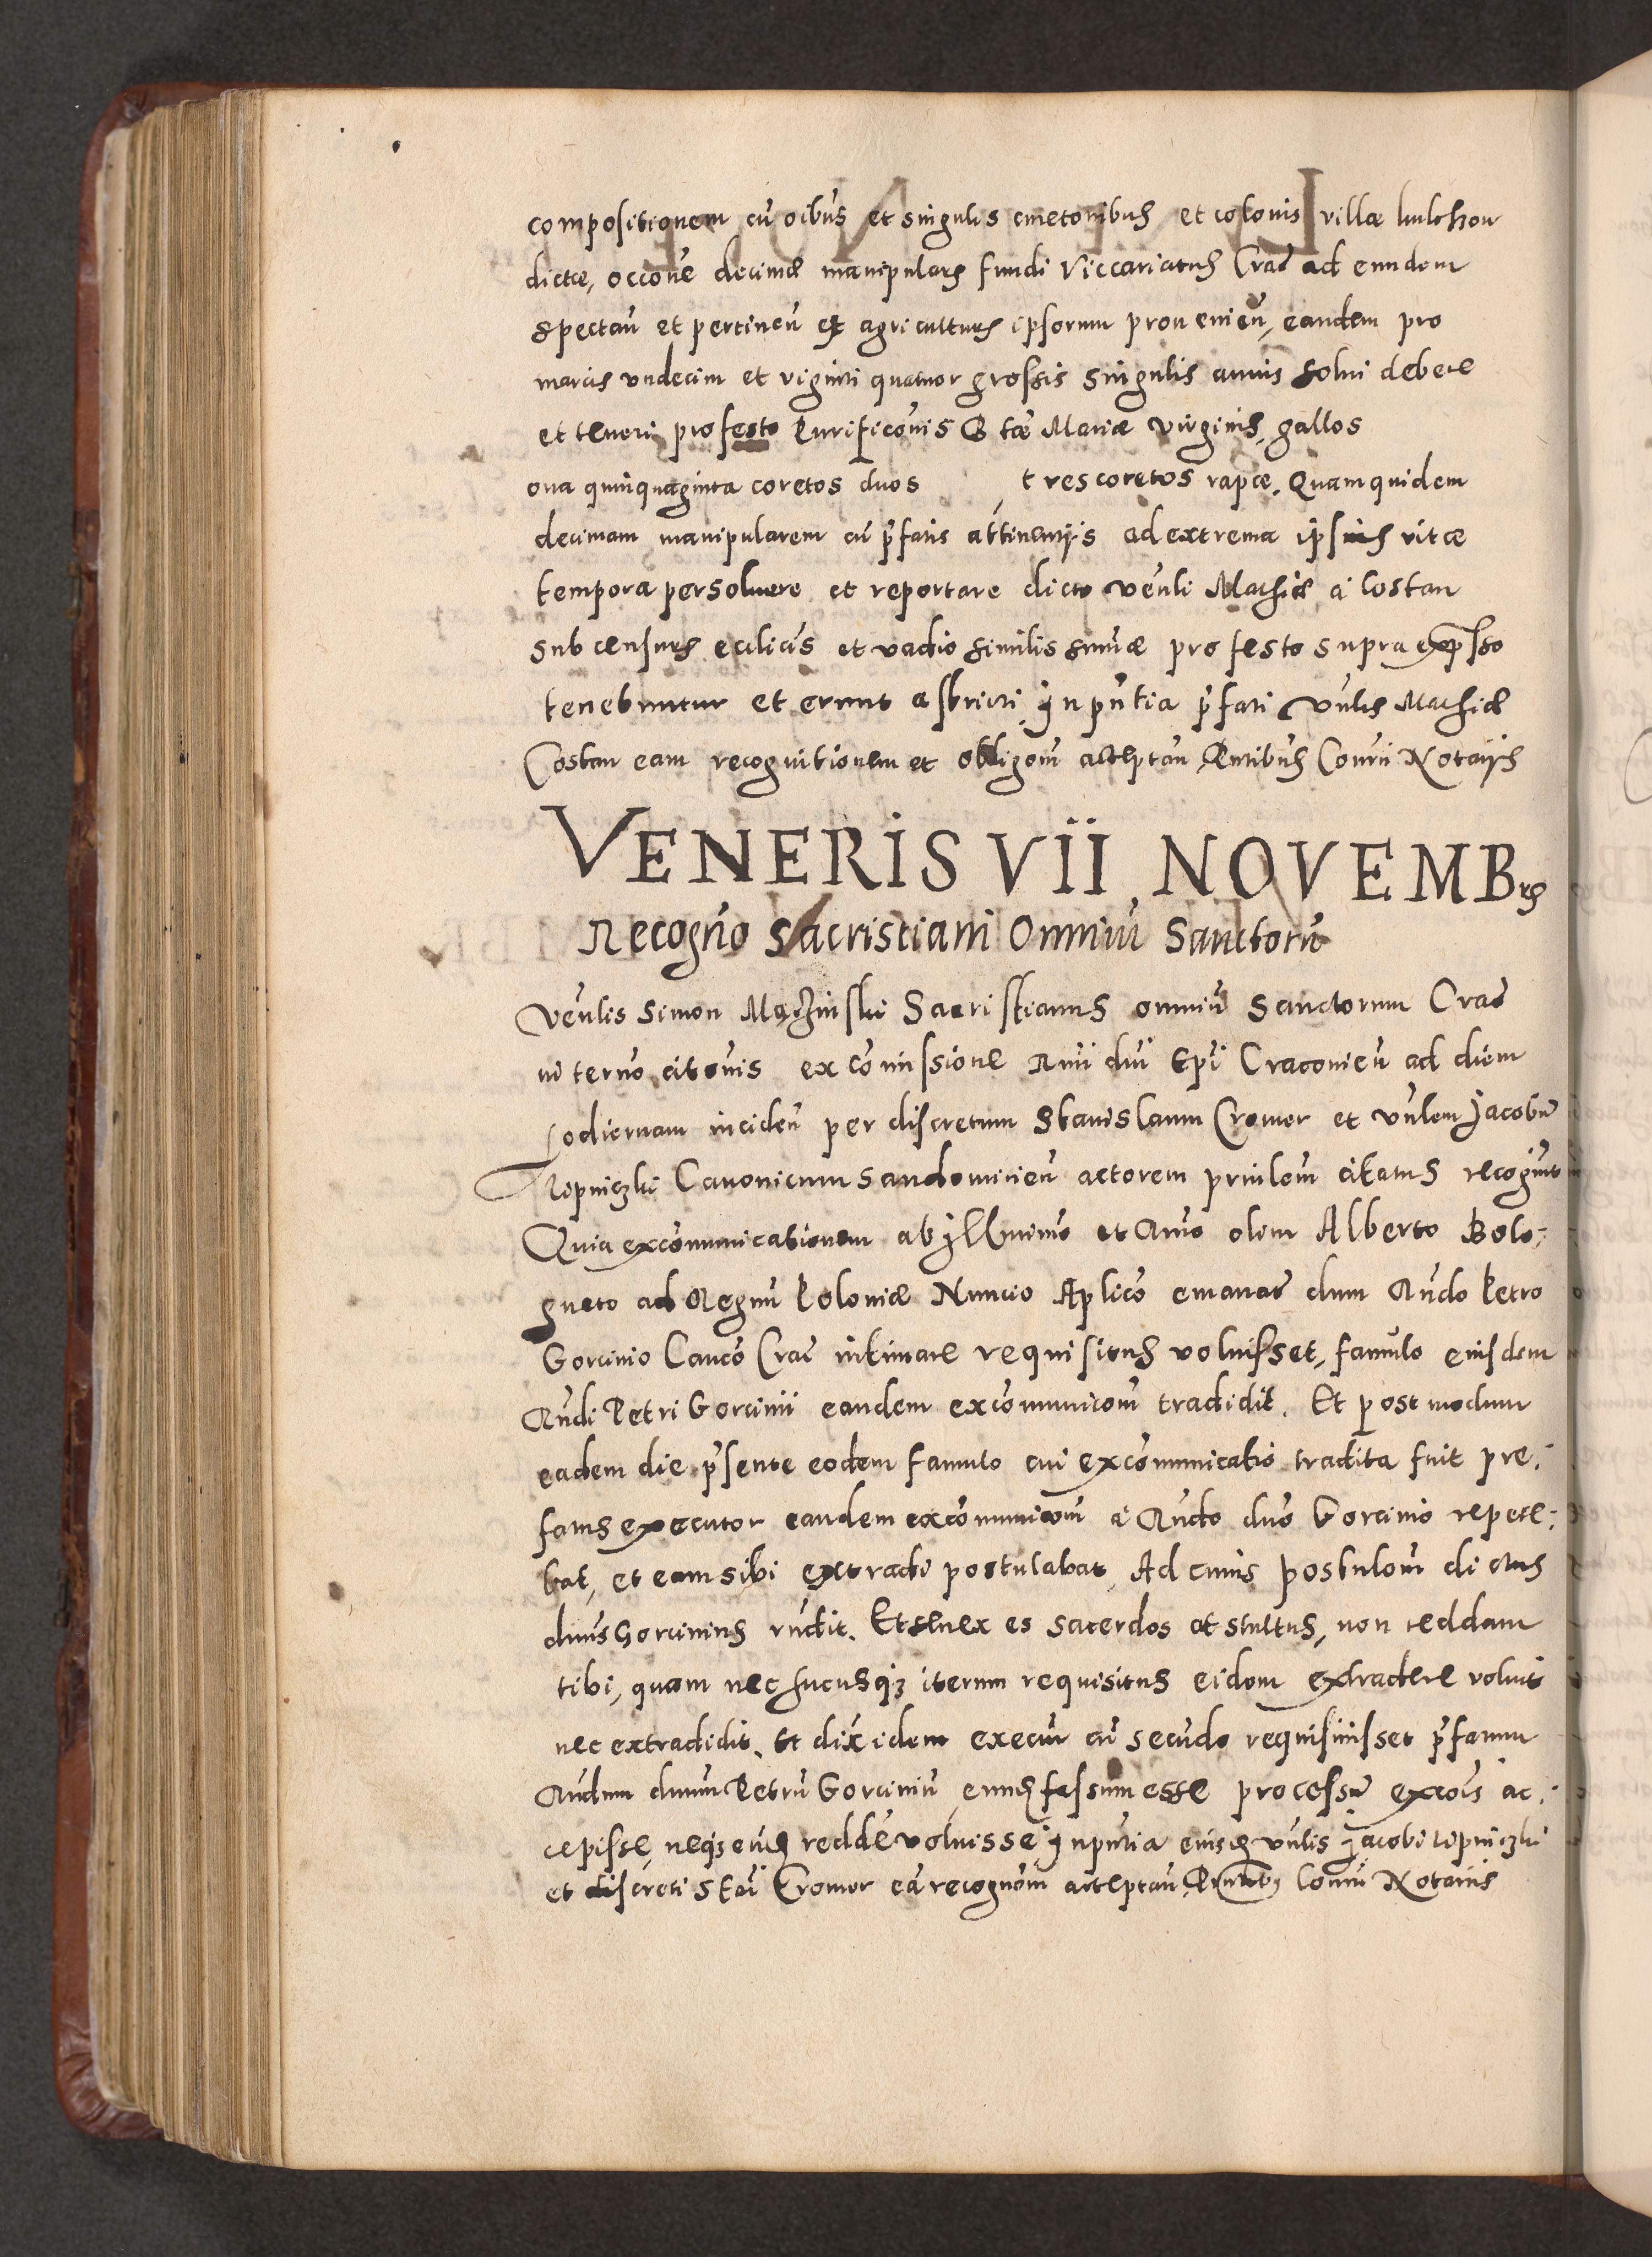 compositionem cū oībus et singulis cmetonibus et colonis villæ
dictæ, occōne decimæ manipularis fundi Viccariatus Crac̄ ad eundem
spectan̄ et pertinen̄ ex agriculturis ipsorum provenien̄, eandem pro
marcis undecim et viginti quatuor grossis singulis annis solvi debere
et teneri pro festo Purificōnis B tæ Mariæ virginis, gallos
ova quinquaginta coretos duos tres coretos rapæ. Quam quidem
decimam manipularem cū p̄fatis attinentijs ad extrema ipsius vitæ
tempora persolvere et reportare dicto ven̄li Mathiæ a Costan
sub censuris ecclicis et vadio similis sum̄æ pro festo supra exp̄sso
tenebuntur et erunt astricti, In pn̄tia p̄fati vn̄lis Mathiæ
Costan eam recognitionem et obligom̄ acceptan̄ Pn̄tibus Coram̄ Notarijs
VENERIS VII NOVEMBris
Recogn̄o Sacristiani Omniū Sanctorū
Ven̄lis Simon Sacristianus omniū Sanctorum Crac̄
in tern̄o citōnis ex cōmissione Rm̄i dn̄i Ep̄i Cracovien̄ ad diem
hodiernam inciden̄ per discretum Stanislaum Cromer et vn̄lem Jacobū
Lipniczki Canonicum Sandomirien̄ actorem prin̄lem citatus recogn̄vit
Quia excōmunicationem ab Illmimo et Rm̄o olim Alberto Bolo=
gneto ad Regnū Poloniæ Nuncio Ap̄lico emanat̄ dum Rn̄do Petro
Gorcinio Canco Crac̄ intimare requisitus voluisset, famulo eiusdem
Rn̄di Petri Gorcinii eandem excōmunicom̄ tradidit. Et postmodum
eadem die p̄sente eodem famulo cui excōmunicatio tradita fuit pre=
fatus executor eandem excōmunicom̄ a Rn̄do dn̄o Gorcinio repete=
bat, et eam sibi extradi postulabat, Ad cuius postulom̄ dictus
dn̄us Gorcinius rn̄dit. Et senex es sacerdos et stultus, non reddam
tibi, quam nec hucusq iterum requisitus eidem extradere voluit
nec extradidit. Et dix̄ idem execut̄ cū secūdo requisivisset p̄fatum
Rn̄dum dnum Petrū Gorciniū, eund fassum esse processū excōis ac=
cepisse, neq eūd redd̄e voluisse, In pn̄tia eiusd vn̄lis Jacobi Lipniczki
et discreti Stai Cromer eā recognom̄ acceptan̄, Pn̄tibus Coram̄ Notariis